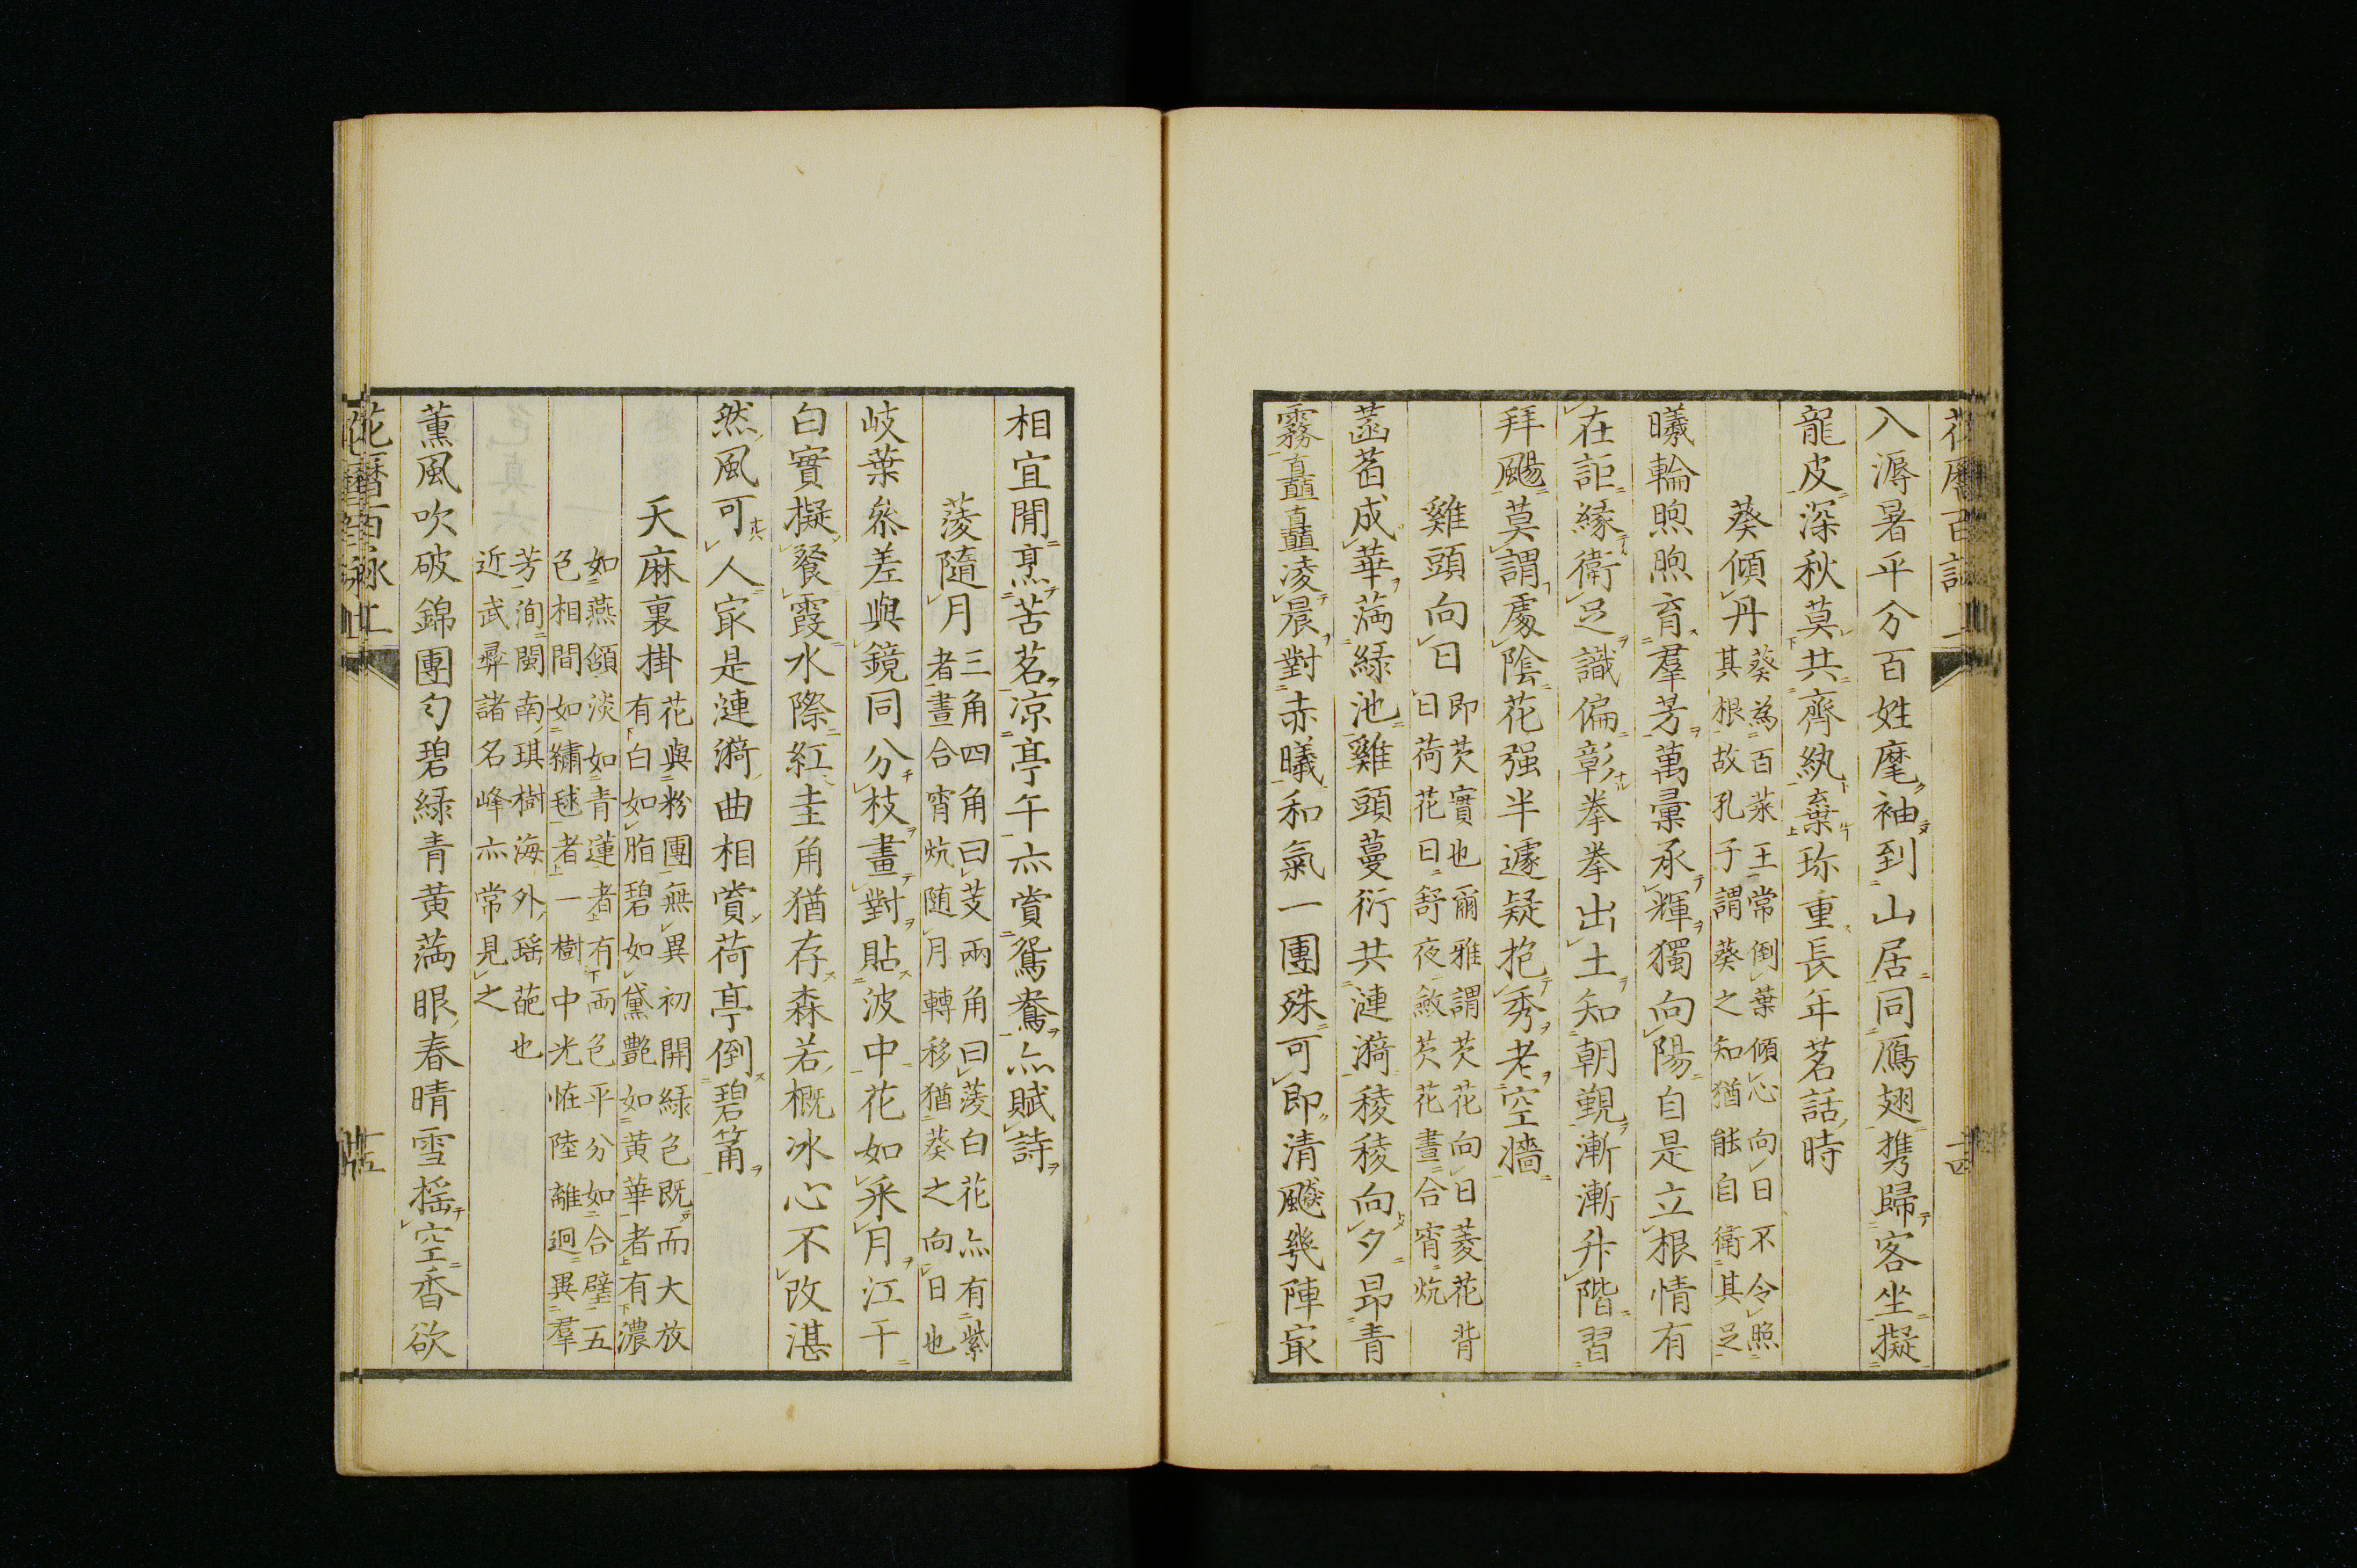 入溽暑平分百姓麾袖到山居同鴈翅携歸客坐擬
龍皮深秋莫共齊紈棄珎重長年茗話時
葵傾丹
葵為百菜王常倒葉傾心向日不令照
其根故孔子謂葵之知猶能自衛其足
曦輪煦煦育羣芳萬彙承輝獨向陽自是立根情有
在詎緣衛足識偏彰拳拳出土知朝覲漸漸升階習
拜颺莫謂處陰花强半遽疑抱秀老空墻
雞頭向日
即芡實也爾雅謂芡花向日菱花背
日荷花日舒夜斂芡花晝合宵炕
菡萏成華滿綠池雞頭蔓衍共漣漪稜稜向夕昂青
霧矗矗凌晨對赤曦和氣一團殊可即清飈幾陣㝡
相宜閒烹苦茗凉亭午亦賞鴛鴦亦賦詩
蔆隨月
三角四角曰芰兩角曰蔆白花亦有紫
者晝合宵炕隨月轉移猶葵之向日也
岐葉叅差與鏡同分枝畫對貼波中花如采月江干
白實擬餐霞水際紅圭角猶存森若概冰心不改湛
然風可人㝡是漣漪曲相賞荷亭倒碧筩
天麻裏掛
花與粉團無異初開綠色既而大放
有白如脂碧如黛艷如黄華者有濃
如燕頷淡如青蓮者有兩色平分如合璧五
色相間如繡毬者一樹中光怪陸離迥異羣
芳洵閩南琪樹海外瑶葩也
近武彝諸名峰亦常見之
薰風吹破錦團勻碧綠青黄滿眼春晴雪摇空香欲
花曆百詠上